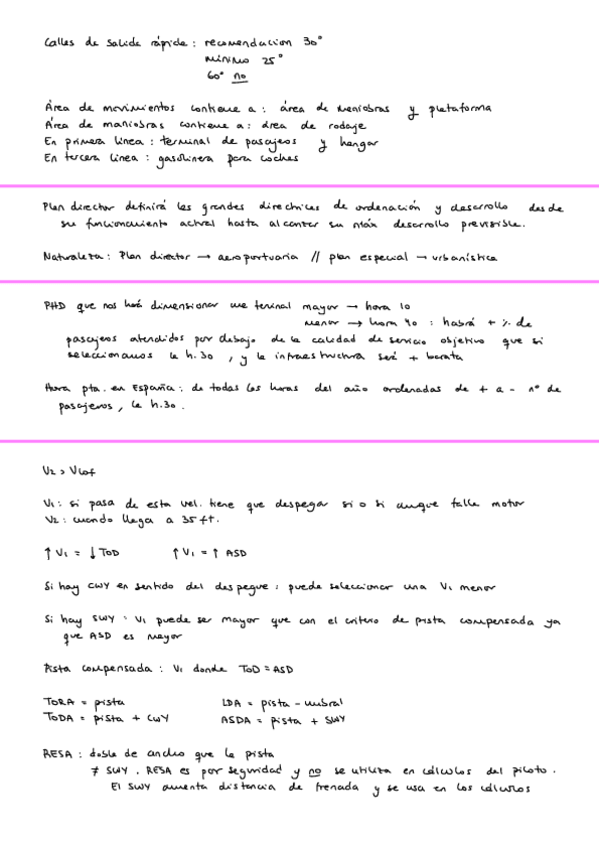 Calles de salida rápida: recomendacion 30°
mínimo 25°
60° no
Área de movimientos contiene a: área de maniobras y plataforma
Área de maniobras contiene a: área de rodaje
En primera línea: terminal de pasajeros y hangar
En tercera línea: gasolinera para coches
Plan director definirá las grandes directrices de ordenación y desarrollo desde
su funcionamiento actual hasta alcanzar su máx desarrollo previsible.
Naturaleza: Plan director → aeroportuaria // plan especial → urbanística
PHD que nos hará dimensionar una terminal mayor → hora 10
menor → hora 40: habrá + % de
pasajeros atendidos por debajo de la calidad de servicio objetivo que si
seleccionamos la h.30, y la infraestructura será + barata
Hora pta. en España: de todas las horas del año ordenadas de + a - nº de
pasajeros, la h.30.
V2 > Vlof
V1: si pasa de esta vel. tiene que despegar si o si aunque falle motor
V2: cuando llega a 35 ft.
↑ V1 = ↓ TOD ↑ V1 = ↑ ASD
Si hay CWY en sentido del despegue: puede seleccionar una V1 menor
Si hay SWY: V1 puede ser mayor que con el criterio de pista compensada ya
que ASD es mayor
Pista compensada: V1 donde TOD = ASD
TORA = pista LDA = pista - umbral
TODA = pista + CWY ASDA = pista + SWY
RESA: doble de ancho que la pista
≠ SWY. RESA es por seguridad y no se utiliza en cálculos del piloto.
El SWY aumenta distancia de frenada y se usa en los cálculos